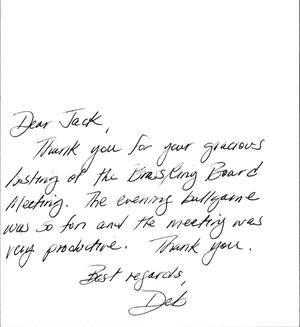 Dear Jack,
Thank you for your gracious
hosting of the BrassRing Board
Meeting. The evening ballgame
was so fun and the meeting was
very productive. Thank you.
Best regards,
Deb